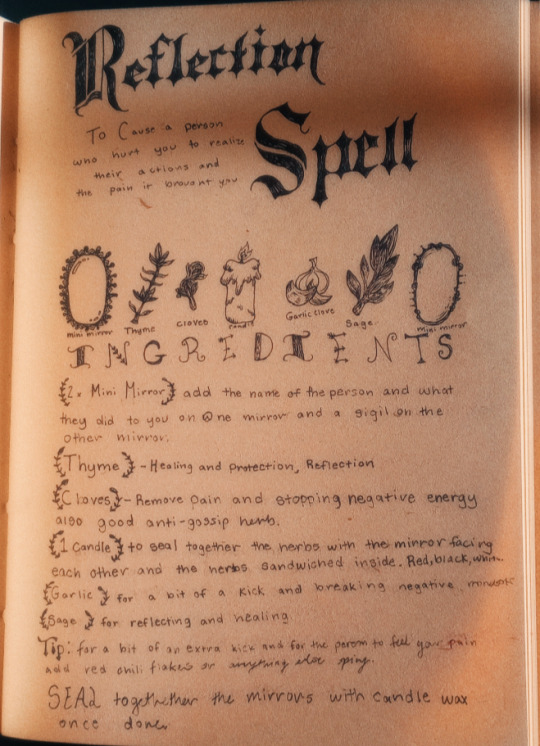 Reflection
Spell
To Cause a person
who hurt you to realize
their actions and
the pain it brought you
mini mirror Thyme cloves candle Garlic clove Sage mini mirror
INGREDIENTS
2x Mini Mirror add the name of the person and what
they did to you on One mirror and a sigil on the
other mirror.
Thyme - Healing and protection, Reflection
Cloves - Remove pain and stopping negative energy
also good anti-gossip herb.
1 Candle to seal together the herbs with the mirror facing
each other and the herbs sandwiched inside. Red, black, white
Garlic for a bit of a kick and breaking negative
Sage for reflecting and healing
Tip: for a bit of an extra kick and for the person to feel your pain
add red chili flakes or anything else
SEAL togethether the mirrors with candle wax
once done.